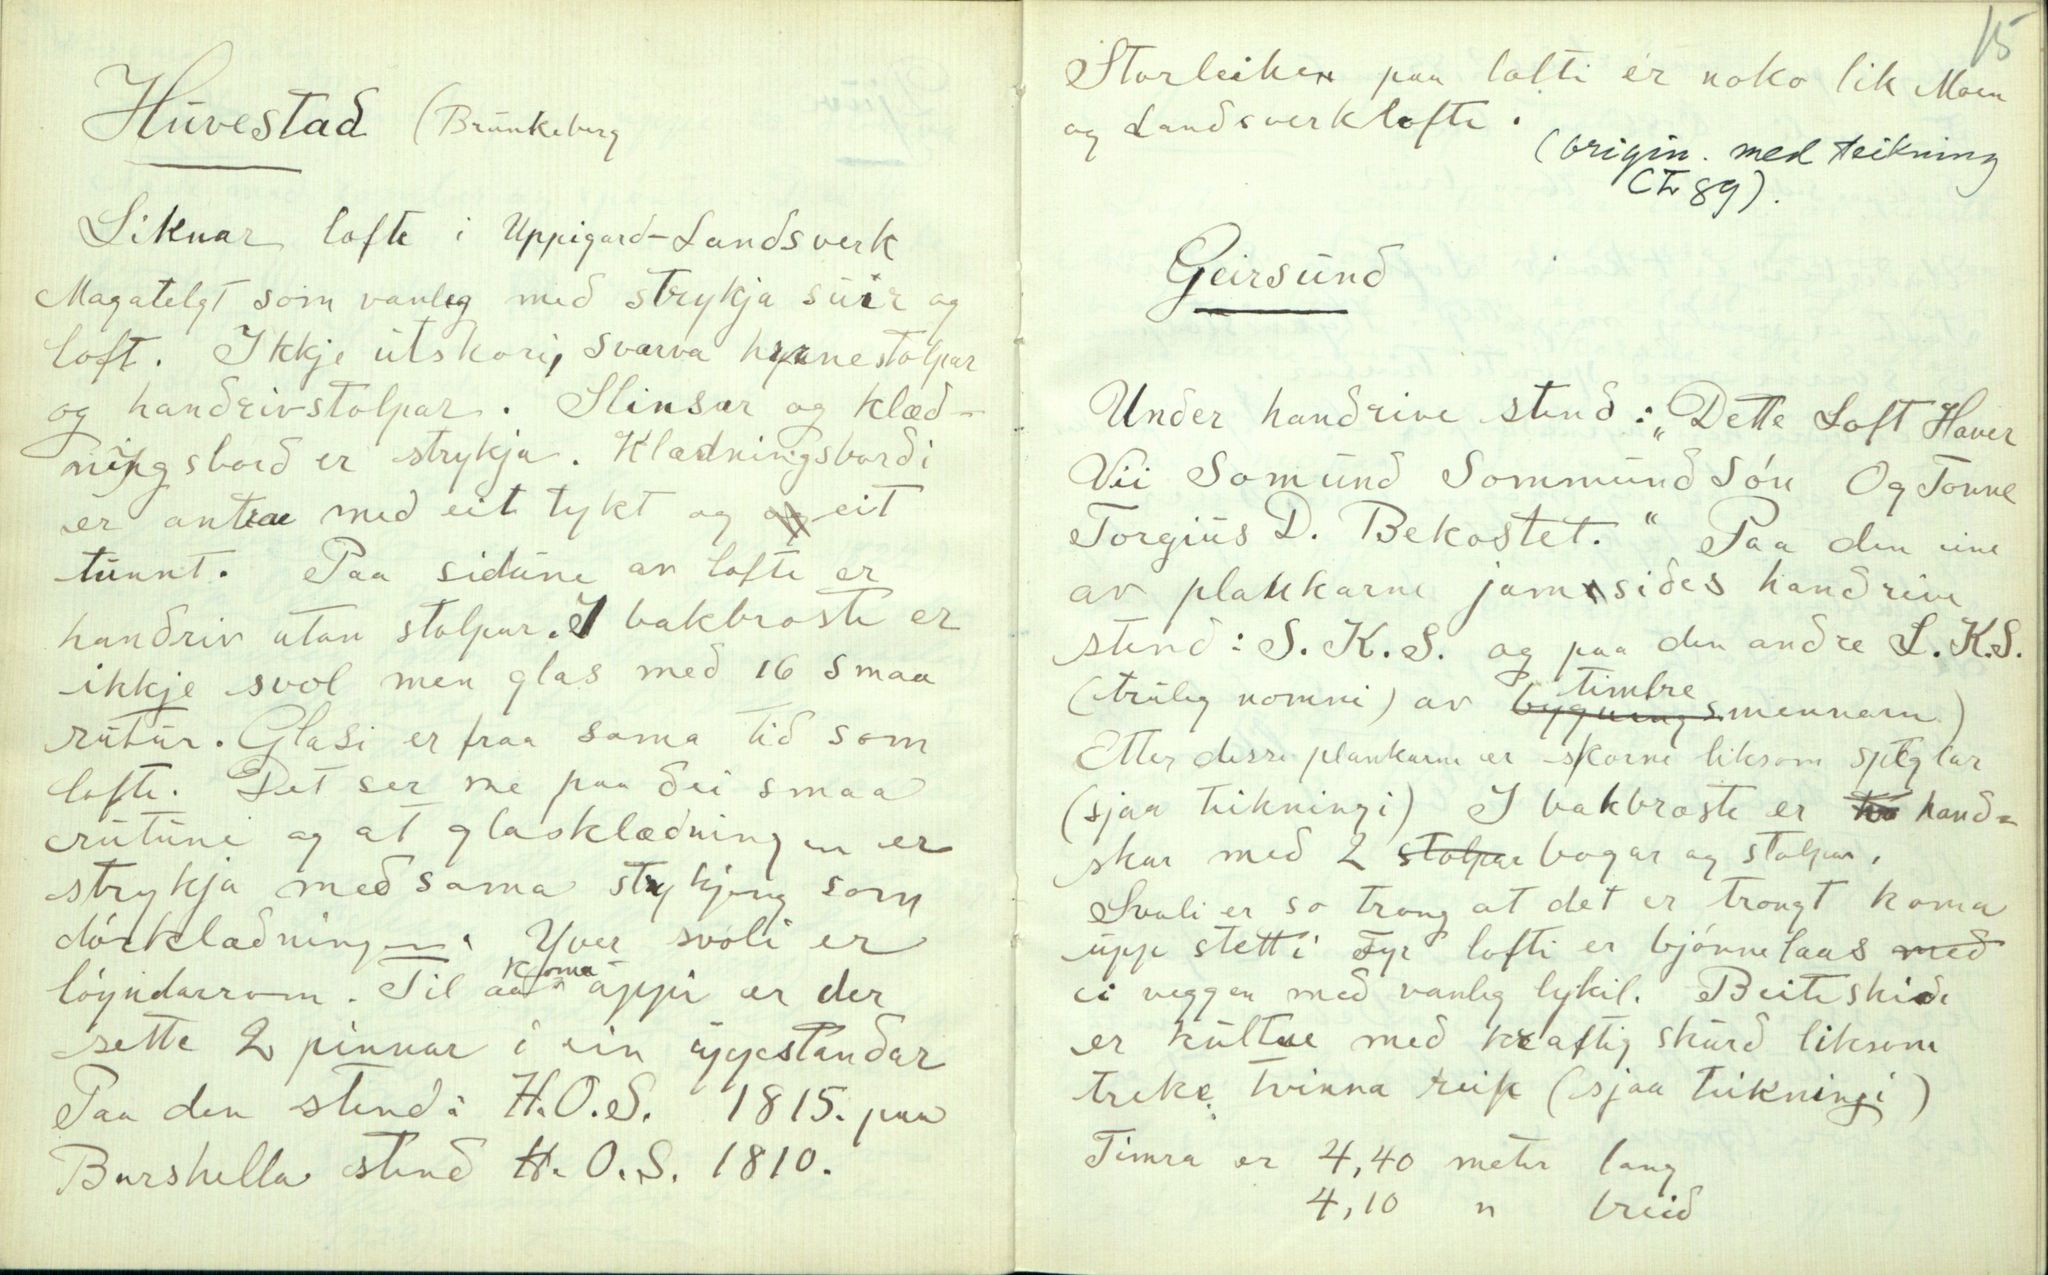 Huvestad (Brunkeberg
Liknar lofte i Uppigard-Landsverk
Magatelgt som vanleg med strykja suir og
loft. Ikkje utskori, svarva hyrnestolpar
og handrivstolpar. Slinsar og klæd-
ningsbord er strykja. Klædningsbordi
er anten med eit tykt og eit
tunnt. Paa sidune av lofte er
handriv utan stolpar. I bakbroste er
ikkje svol men glas med 16 smaa
rutur. Glasi er fraa sama tid som
lofte. Det ser me paa dei smaa
rutune og at glasklædningen er
strykja med sama strykjing som
dórklædningen. Yver svoli er
lóyndarrom. Til aa koma uppi er der
sette 2 pinnar i ein uppstandar
Paa den stend: H.O.S. 1815. paa
Burshella stend H.O.S. 1810.
15
Storleiken paa lofti er noko lik Moen
og Landsverklofte.
(origin. med teikning
(Tr 89).
Geirsund
Under handrive stend: „Dette Loft Haver
Vii Somund Sommundsón Og Tonne
Torgius D. Bekostet." Paa den eine
av plankarne jamsides handrive
stend: S.K.S. og paa den andre L.K.S.
(truleg nomni) av bygnings timbremennarn)
Etter desse plankarne er skorne liksom speglar
(sjaa teikningi) I bakbroste er hand-
skar med 2 stolpar bogar og stolpar.
Svali er so trong at det er trongt koma
upp stetti Fyr lofti er bjónnelaas med
i veggen med vanleg lykil. Beiteskide
er kultue med kraftig skurd liksom
treke tvinna reip (sjaa teikningi)
Timra er 4,40 meter lang
4,10 " breid